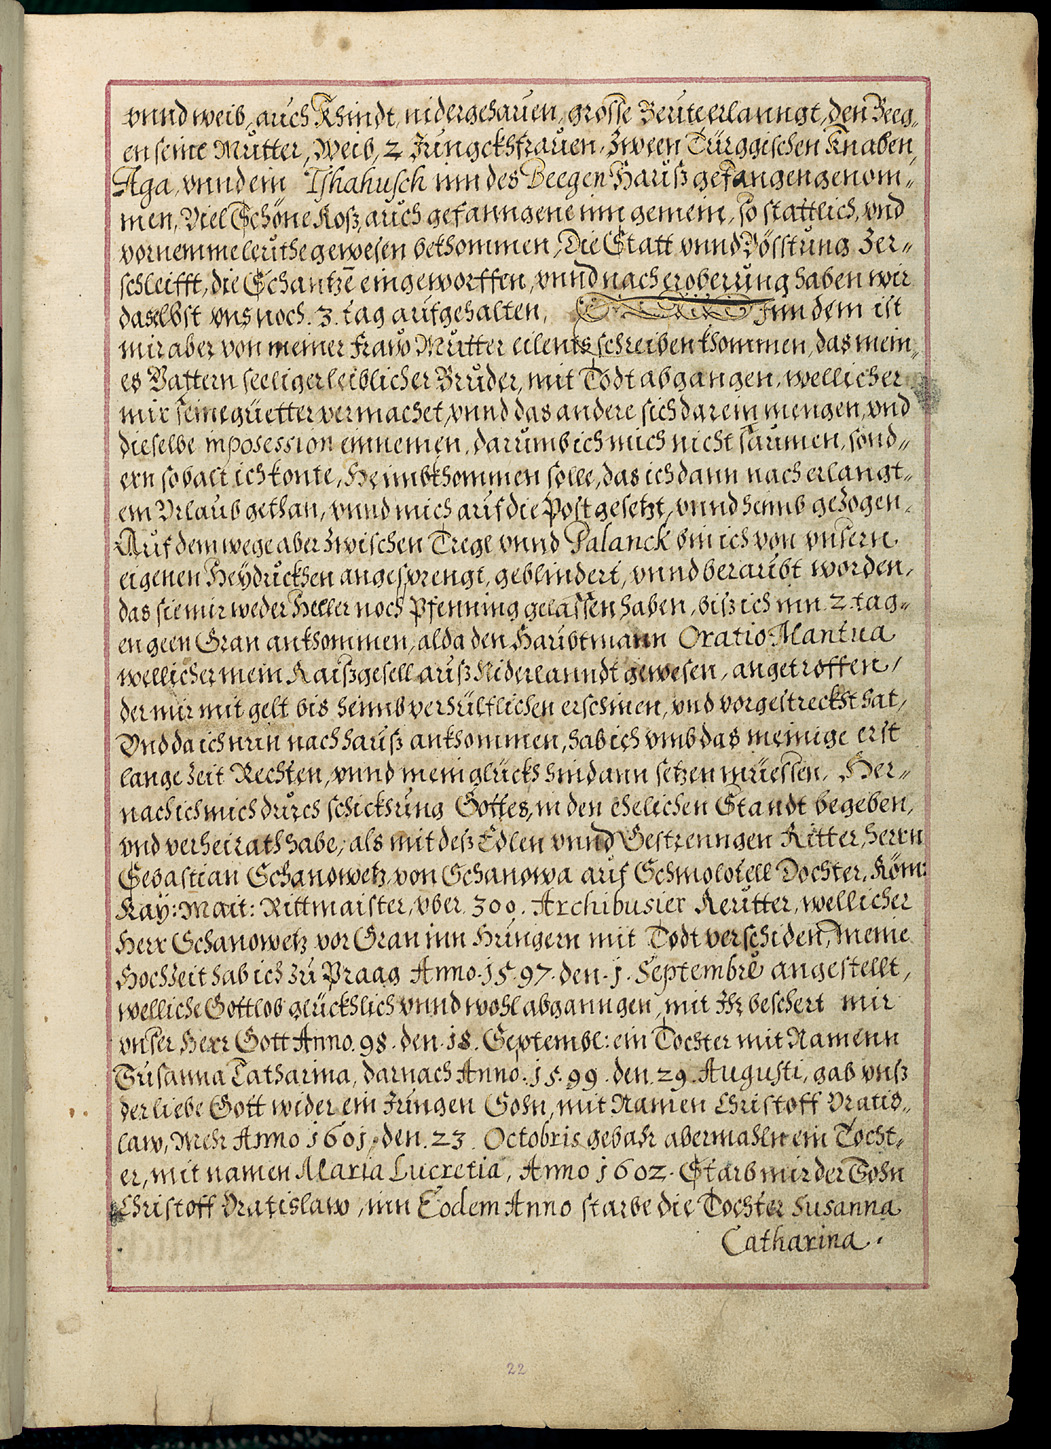 vnnd weib, auch Khindt, nidergehauen, grosse Beute erlanngt, den Beeg„
en seine Mutter, Weib, 2 Jungckhfrauen, Zween Türggischen Knaben,
Aga, vnnd ein Tshahusch inn des Beegen Hauß gefangen genom„
men, Viel Schöne Roß, auch gefanngene inn gemein, so stattlich, vnd
vornemme leuthe gewesen bekhommen, Die Statt vnnd Vösstung Zer„
schleifft, die Schantzē eingeworffen, vnnd nach eroberung haben wir
daselbst vns noch .3. tag aufgehalten, Inn dem ist
mir aber von meiner Fraw Mutter eilents schreiben khommen, das mein„
es Vattern seeliger leiblicher Bruder, mit Todt abgangen, wellicher
mir seine güetter vermachet, vnnd das andere sich darein mengen, vnd
dieselbe in posession einnemen, darumb ich mich nicht saumen, sond„
ern sobalt ich konte, Heimbkhommen solle, das ich dann nach erlangt„
em Vrlaub gethan, vnnd mich auf die Post gesetzt, vnnd heimb gezogen,
Auf dem wege aber zwischen Trege vnnd Palanck bin ich von vnsern
eigenen Heyduckhen angesprengt, geblindert, vnnd beraubt worden,
das sie mir weder Heller noch Pfenning gelassen haben, biß ich inn .2. tag„
en geen Gran ankhommen, alda den Haubtmann Oratio Mantua
wellicher mein Raißgesell auß Niderlanndt gewesen, angetroffen,
der mir mit gelt bis heimb verhülflichen erschinen, vnd vorgestreckht hat,
Vnd da ich nun nach hauß ankhommen, hab ich vmb das meinige erst
lange Zeit Rechten, vnnd mein glückh hindann setzen müessen, Her„
nach ich mich durch schickhung Gottes, in den ehelichen Standt begeben,
vnd verheirath habe, als mit deß Edlen vnnd Gestrenngen Ritter, Herrn
Sebastian Schanowetz, von Schanowa auf Schmolotell Dochter, Röm:
Kay: Mait: Rittmaister, vber .300. Archibusier Reutter, wellicher
Herr Schanowetz vor Gran inn Hungern mit Todt verschiden, meine
Hochzeit hab ich zu Praag Anno .1597. den .1. Septembre angestellt,
welliche Gottlob glückhlich vnnd wohl abganngen, mit Ihr beschert mir
vnser Herr Gott Anno .98. den .18. Septembe: ein Tochter mit Namenn
Susanna Catharina, darnach Anno .1599. den .29. Augusti, gab vnß
der liebe Gott wider ein Jungen Sohn, mit Namen Christoff Vratis„
law, Mehr Anno 1601. den .23. Octobris gebahr abermahln ein Tocht„
er, mit namen Maria Lucretia, Anno 1602. Starb mir der Sohn
Christoff Vratislaw, inn Eodem Anno starbe die Tochter Susanna
Catharina.
22